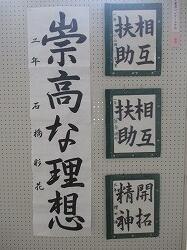 相互
扶助
相互
扶助
開拓
精神
崇高な理想
年 石橋 花